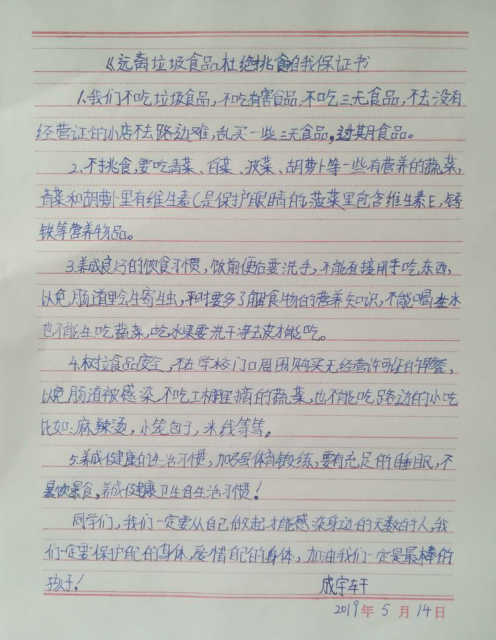 《远离垃圾食品杜绝挑食》自我保证书
1.我们不吃垃圾食品，不吃有害食品，不吃三无食品，不去没有
经营证的小店不去路边难，乱买一些三无食品，过期食品。
2、不挑食，要吃青菜、白菜、菠菜、胡萝卜等一些有营养的蔬菜，
青菜和胡萝卜里有维生素C是保护眼睛的，菠菜里包含维生素E，锌
铁等营养物品。
3.养成良好的饮食习惯，饭前便后要洗手，不能直接用手吃东西，
以免肠道里会生寄生虫，平时要多了解食物的营养知识，不能喝生水
也不能生吃蔬菜，吃水果要洗干净去皮才能吃。
4.树立食品安全，不去学校门口周围购买无经营许可证的早餐，
以免肠道被感染，不吃工棚里搞的蔬菜，也不能吃路边的小吃
比如：麻辣烫，小笼包子，米线等等。
5.养成健康的生活习惯，加强体育锻练，要有充足的睡眠，不
暴饮暴食，养成健康卫生的生活习惯！
同学们，我们一定要从自己做起才能感染身边的无数的人，我
们一定要保护自己的身体，爱惜自己的身体，加油我们一定是最棒的
孩子！ 成宇轩
2019年5月14日